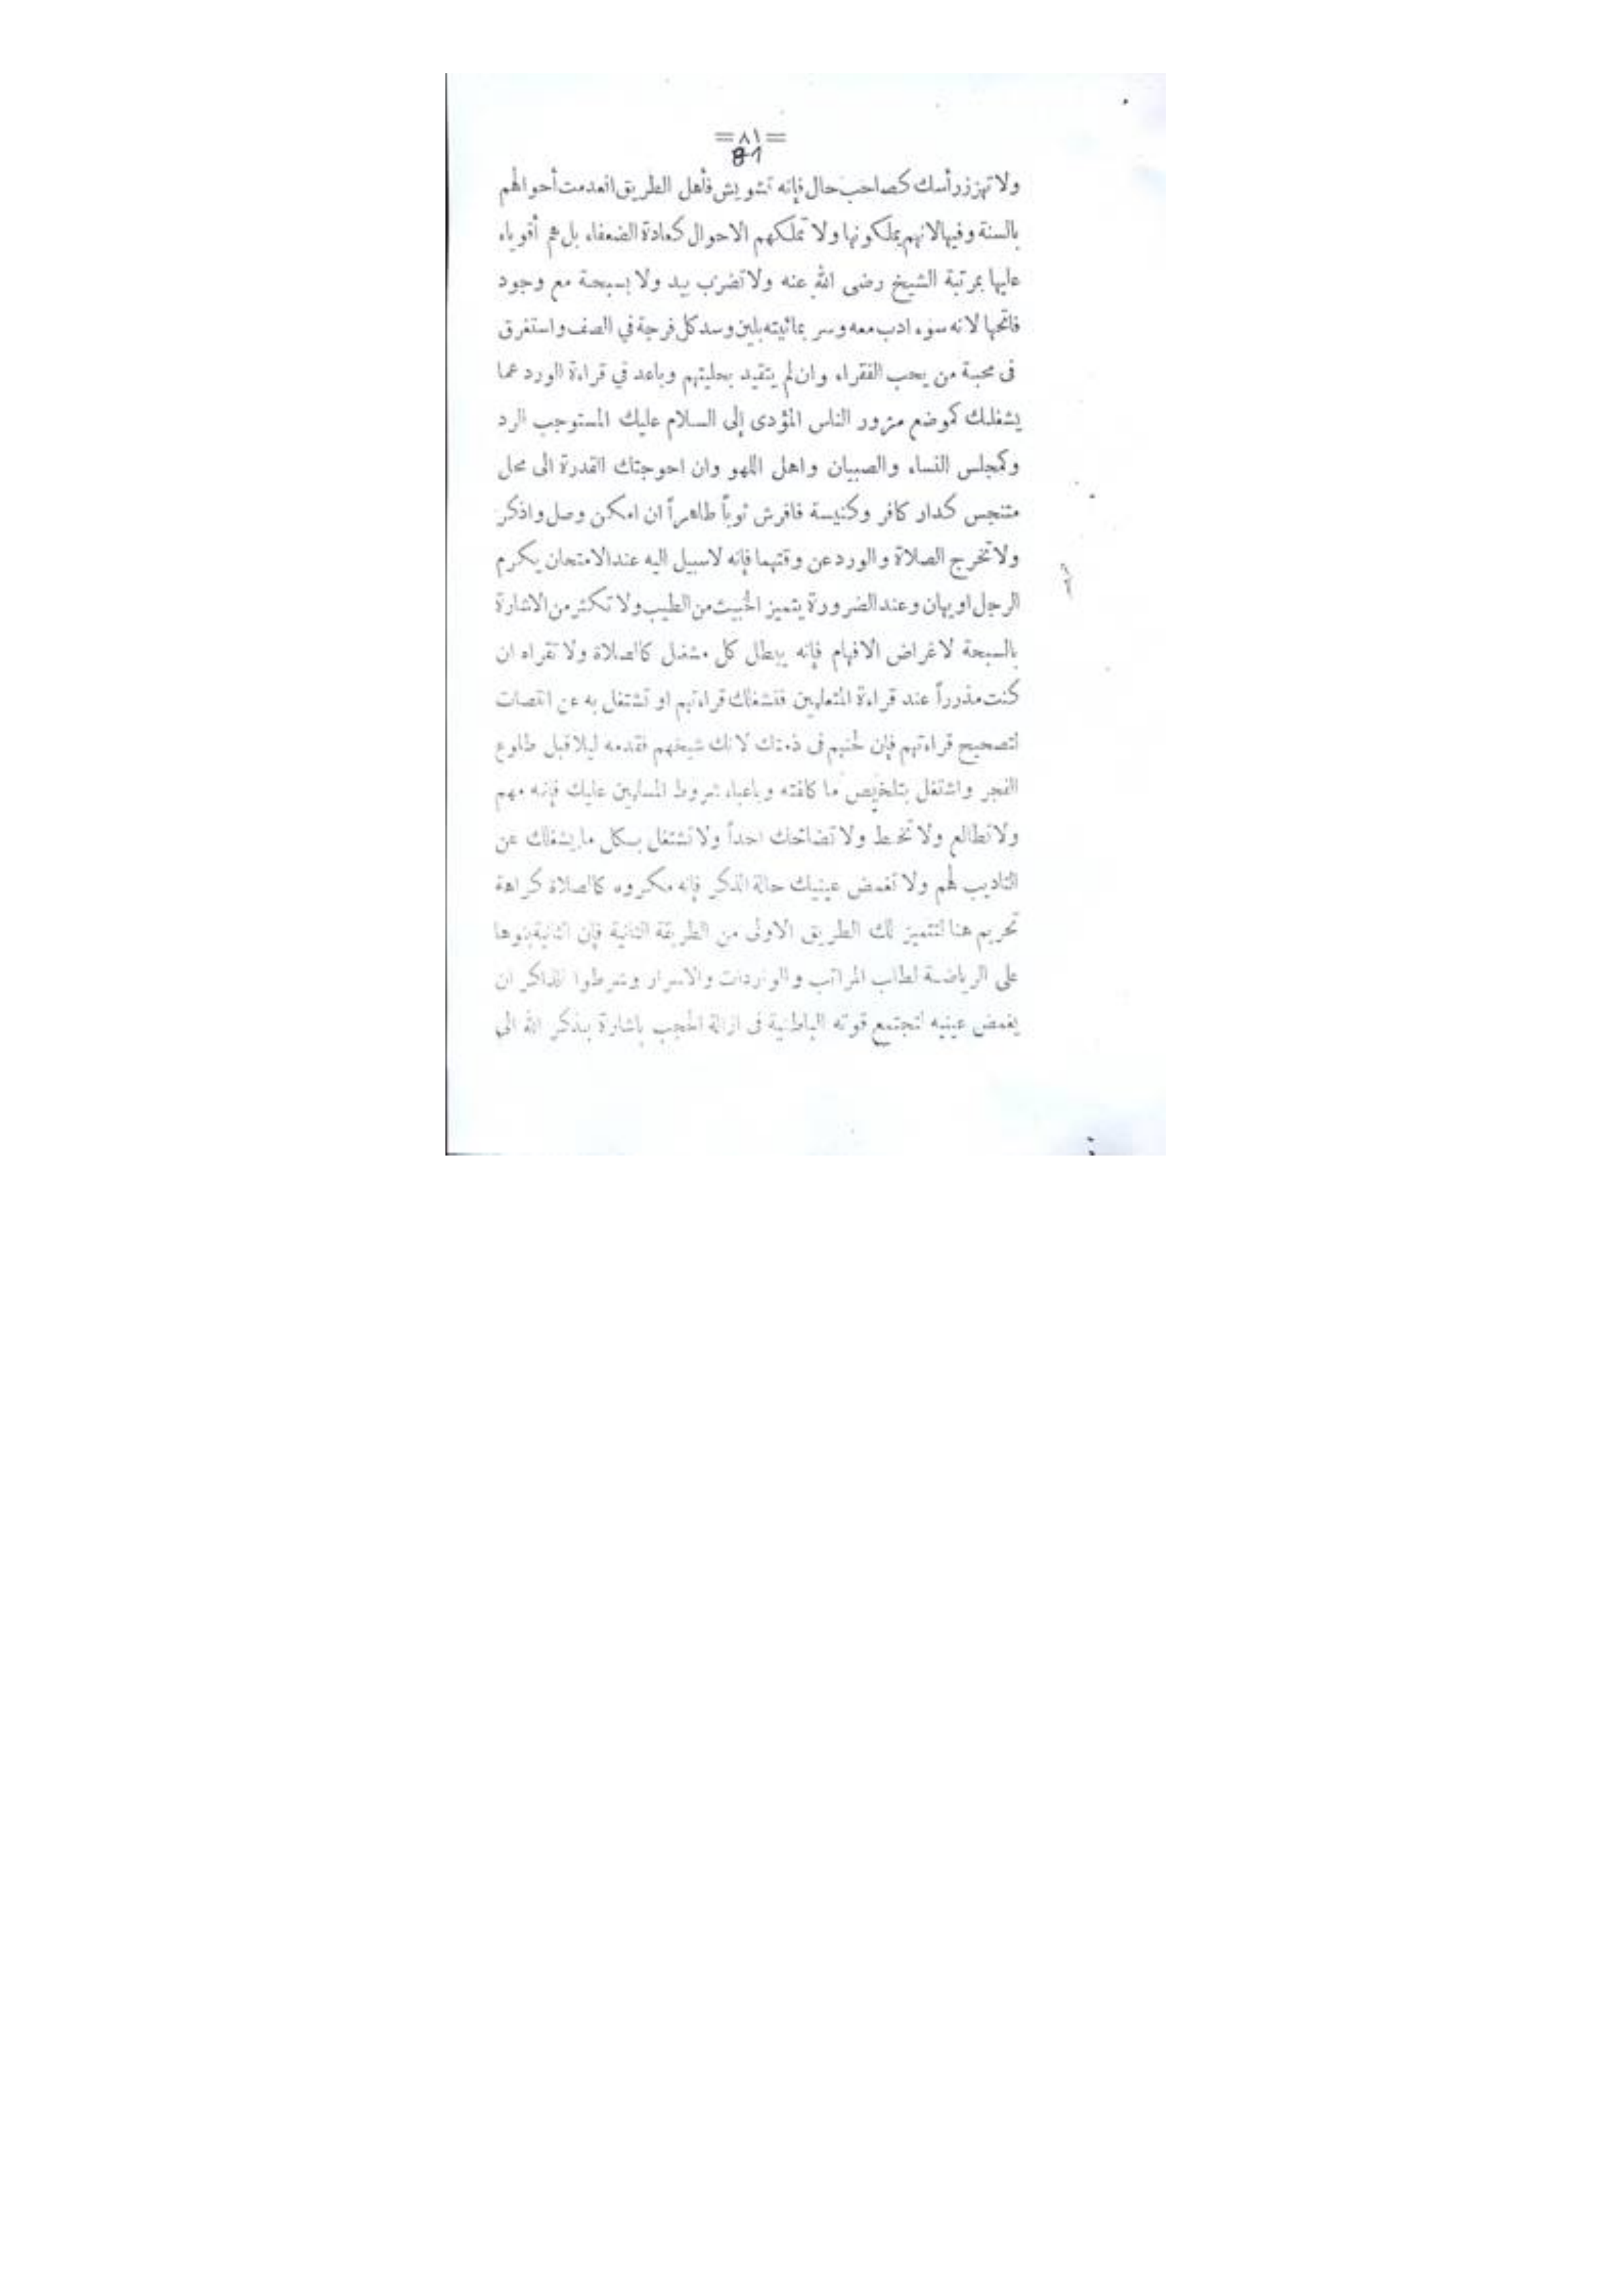 = ٨١ =
81
ولا تهزز رأسك كصاحب حال فإنه تشويش فأهل الطريق انعدمت أحوالهم
بالسنة وفيها لانهم يملكونها ولا تملكهم الاحوال كعادة الضعفاء بل هم أقوياء
عليها بمرتبة الشيخ رضى الله عنه ولا تضرب بيد ولا بسبحة مع وجود
فاتحها لانه سوء ادب معه وسر بمائيته بلين وسد كل فرجة في الصف واستغرق
فى محبة من يحب الفقراء وان لم يتقيد بحليتهم وباعد في قراءة الورد عما
يشغلك كموضع مرور الناس المؤدى إلى السلام عليك المستوجب الرد
وكمجلس النساء والصبيان واهل اللهو وان احوجتك القدرة الى محل
متنجس كدار كافر وكنيسة فافرش ثوباً طاهراً ان امكن وصل واذكر
ولا تخرج الصلاة والورد عن وقتهما فإنه لا سبيل اليه عند الامتحان يكرم
الرجل او يهان وعند الضرورة يتميز الخبيث من الطيب ولا تكثر من الاشارة
بالسبحة لاغراض الافهام فإنه يبطل كل مشغل كالصلاة ولا تقراه ان
كنت مذرراً عند قراءة المتعلمين فتشغلك قراءتهم او تشتغل به عن انصات
لتصحيح قراءتهم فإن لحنهم فى ذمتك لانك شيخهم فقدمه ليلا قبل طلوع
الفجر واشتغل بتلخيص ما كلفته وباعباء شروط المسلمين عليك فإنه مهم
ولا تطالع ولا تخط ولا تضاحك احداً ولا تشتغل بكل ما يشغلك عن
التاديب لهم ولا تغمض عينيك حالة الذكر فإنه مكروه كالصلاة كراهة
تحريم هنا لتتميز لك الطريق الاولى من الطريقة الثانية فإن الثانية بنوها
على الرياضة لطلب المراتب والواردات والاسرار وشرطوا للذاكر ان
يغمض عينيه لتجتمع قوته الباطنية فى ازالة الحجب باشارة بذكر الله الى